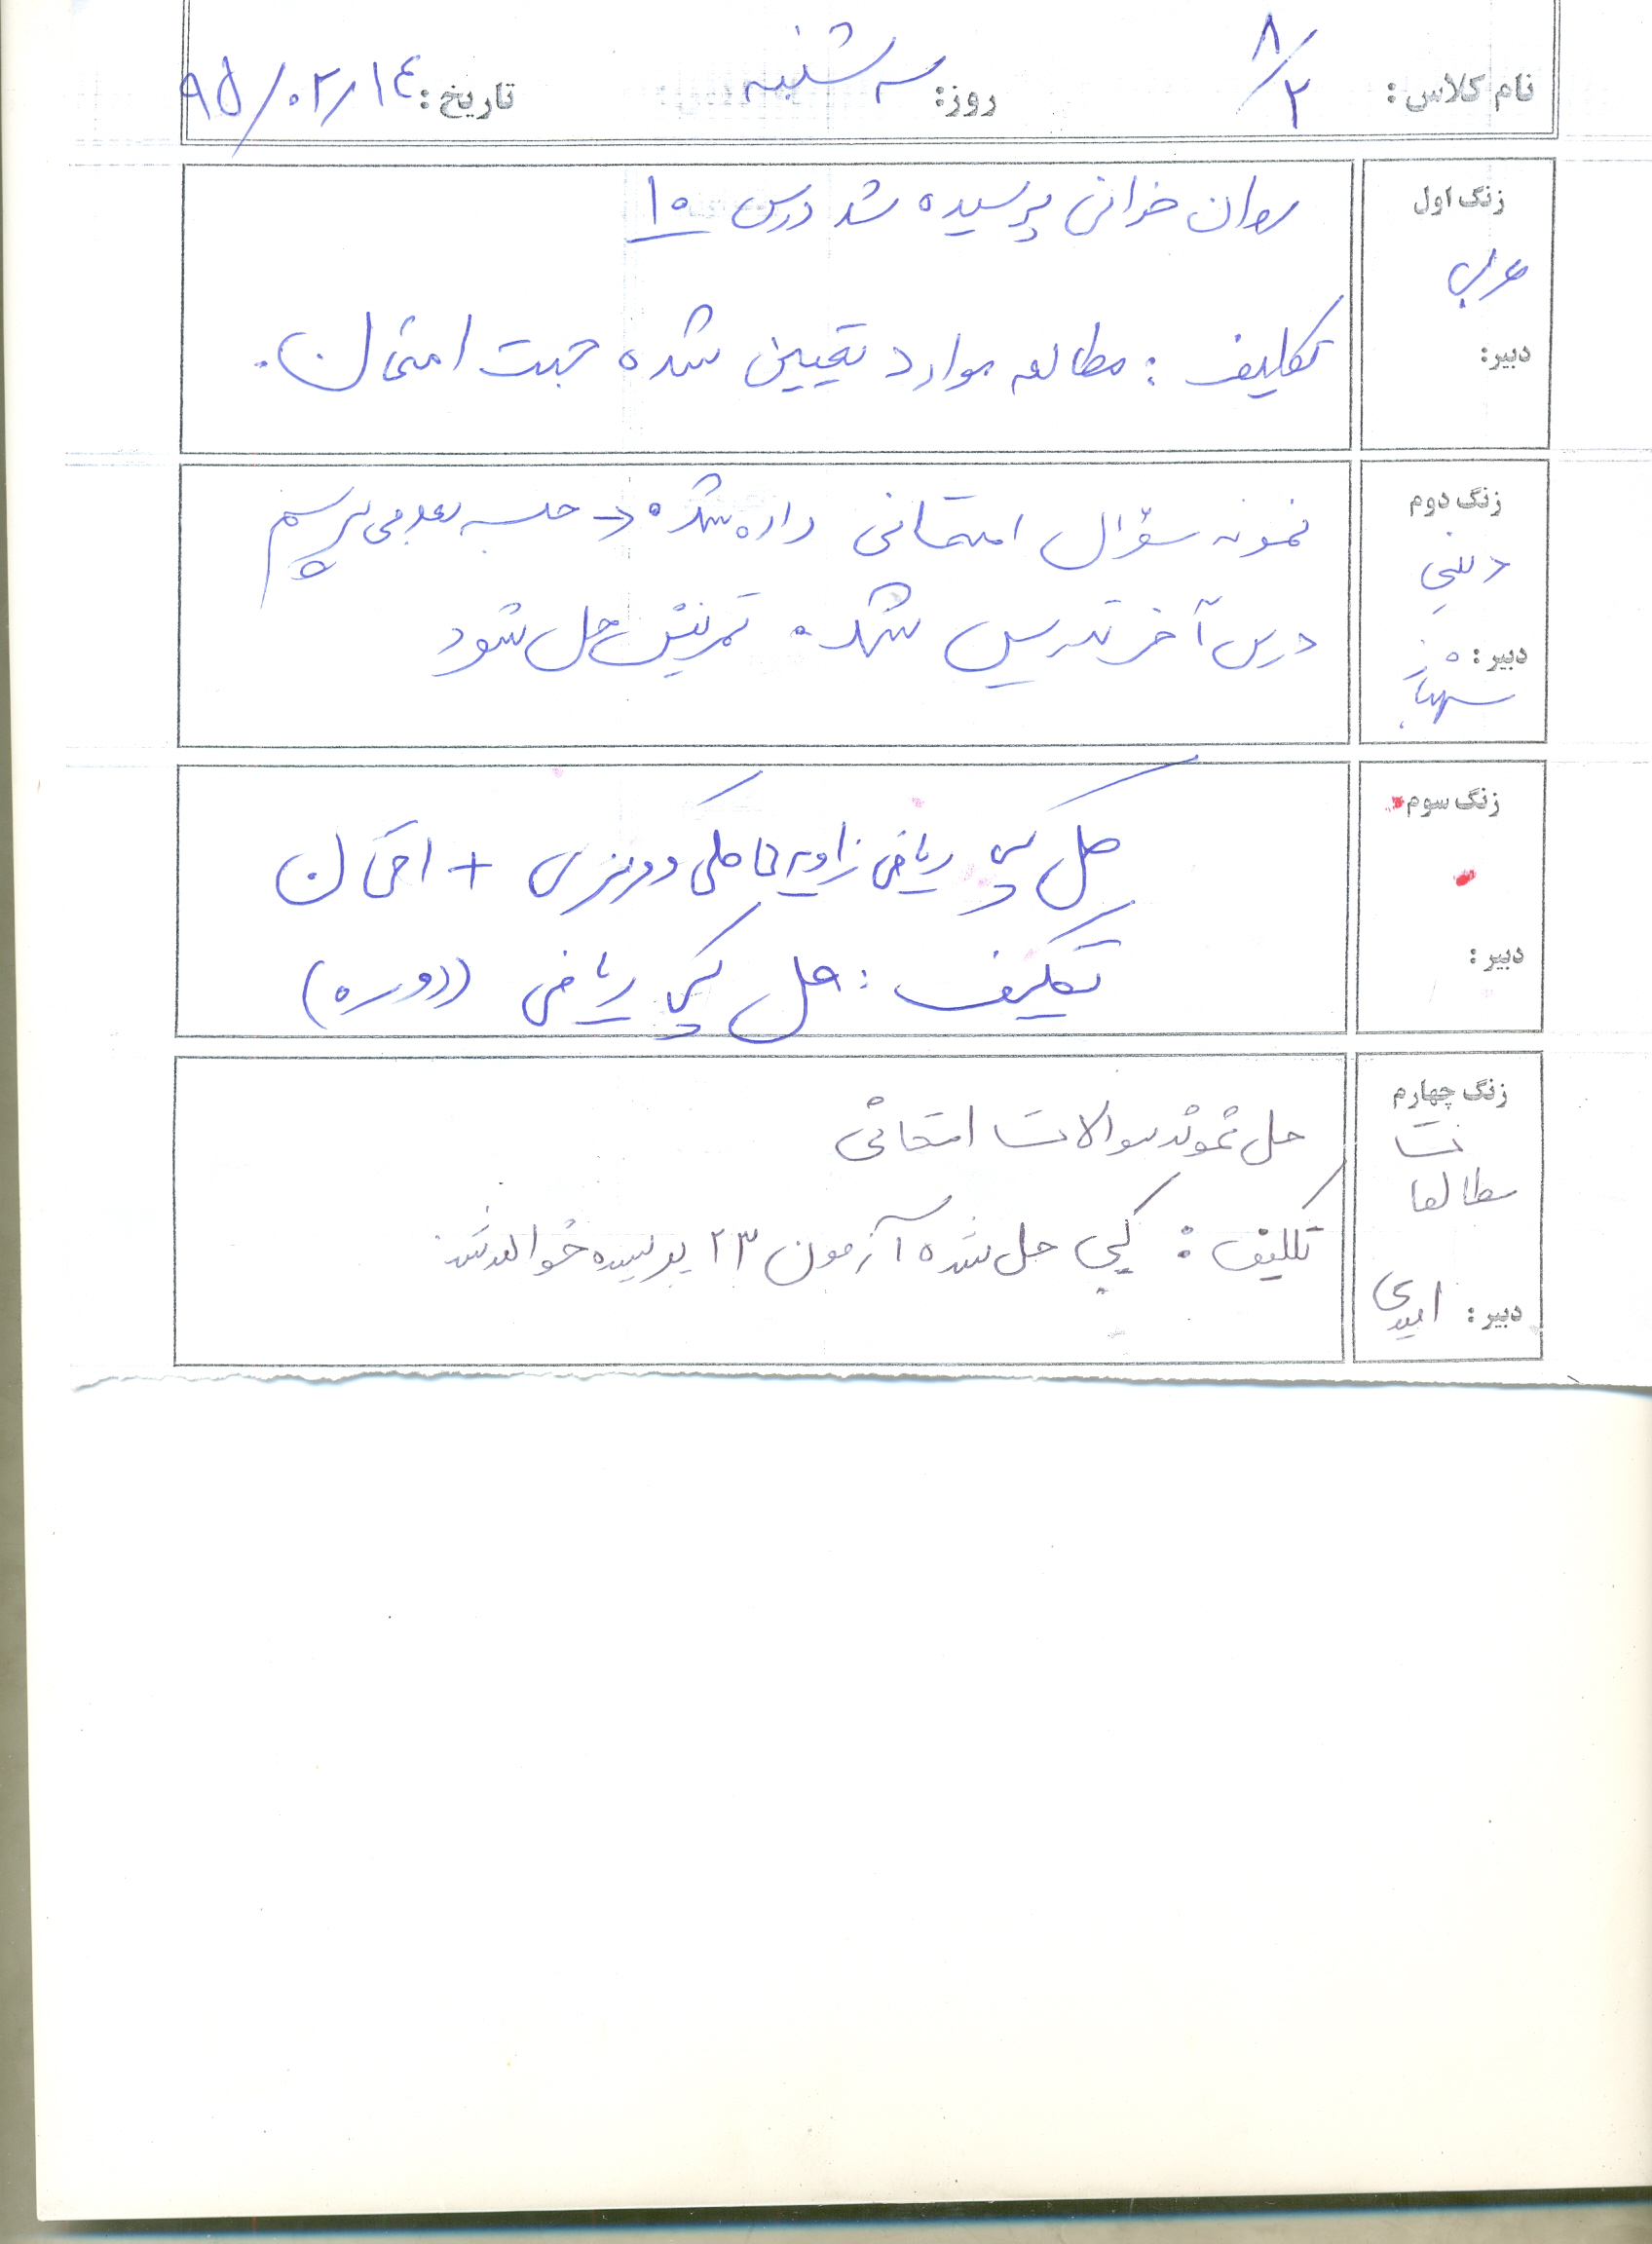 نام کلاس : ۸/۲ روز: سه شنبه تاریخ : ۹۵/۰۲/۱۴
زنگ اول
عربی
دبیر:
روان خوانی پرسیده شد درس ۱۰
تکلیف : مطالعه موارد تعیین شده جهت امتحان.
زنگ دوم
دینی
دبیر :
نمونه سؤال امتحانی داده شده → جلسه بعد می پرسیم
درس آخر تدریس شد. تمرینش حل شود
زنگ سوم
دبیر :
حل کپی ریاضی زاویه محاطی و مرکزی + امتحان
تکلیف : حل کپی ریاضی (دوره)
زنگ چهارم
مطالعات
دبیر : امیدی
حل نمونه سوالات امتحانی
تکلیف : کپی حل شده آزمون ۲۳ پرسیده خواهد شد